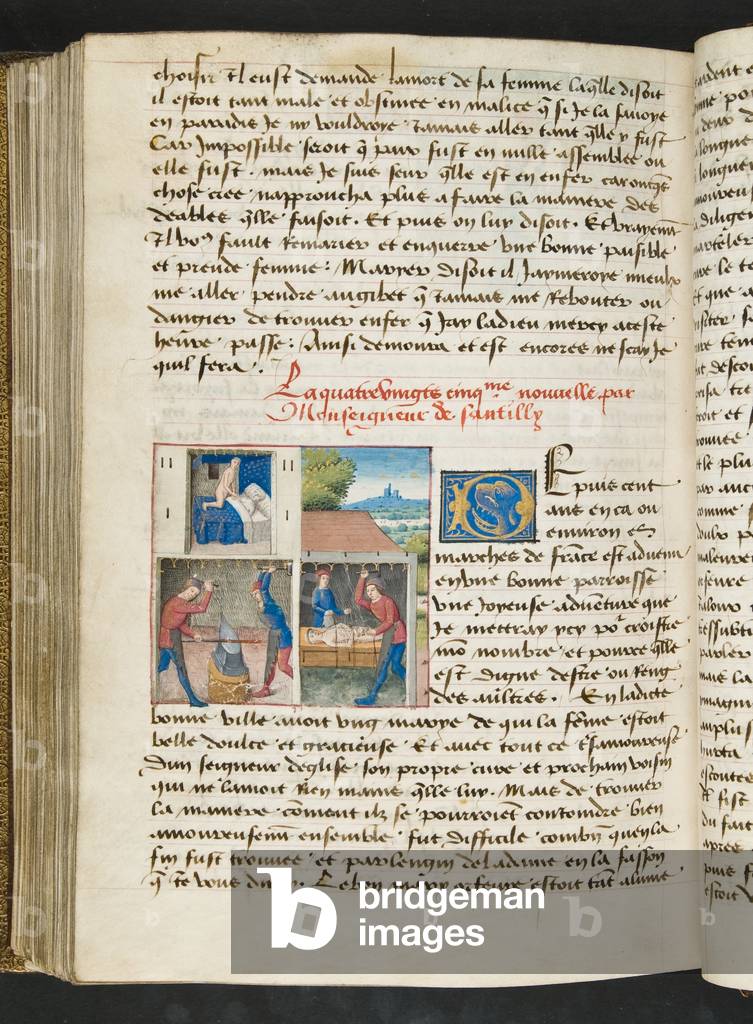 choisir Il eust demande la mort de sa femme laqlle disoit
il estoit tant male et obstinee en malice q si Je la sauoye
en paradis Je ny vouldroye Jamais aller tant qlle y fust
Car Impossible seroit q paix fust en nulle assemblee ou
elle fust . mais Je suis seur qlle est en enfer car onqs
chose cree napproucha plus a faire la maniere des
deables qlle faisoit . Et puis on luy disoit . Et vrayemt
Il vo9 fault Remarier et enquerre vne bonne paisible
et prende femme : Maryer disoit il Jaymeroye mieulx
me aller pendre au gibet q Jamais me Rebouter ou
dangier de trouuer enfer q Jay la dieu mercy a ceste
heure passe : Ainsi demoura et est encores ne scay Je
quil fera .
La quatrevingts cinqme nouuelle par
Monseigneur de santilly
Epuis cent
ans en ca ou
enuiron es
marches de france est aduenu
en vne bonne parroisse
vne Joyeuse aduenture que
Je mettray ycy po croistre
mo nombre et pource qlle
est digne destre ou Reng
des aultres . En ladicte
bonne ville auoit vng marye de qui la feme estoit
belle doulce et gracieuse Et auec tout ce tsamoureuse
dun seigneur deglise son propre cure et prochain voisin
qui ne lamoit Rien mains qlle luy . Mais de trouuer
la maniere coment ilz se pourroient contoindre bien
amoureusemt ensemble fut difficile combn quen la
fin fust trouuee et par lengin de la dame en la fasson
q Je vous diray . Le bon mary orfeure estoit tat alume
bridgeman
images